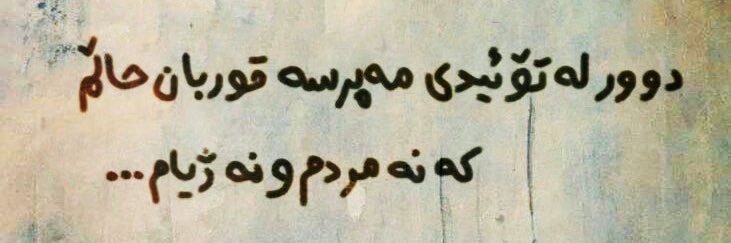 دوور لە تۆ ئیدی مەپرسە قوربان حاڵم
کە نە مردم و نە ژیام...